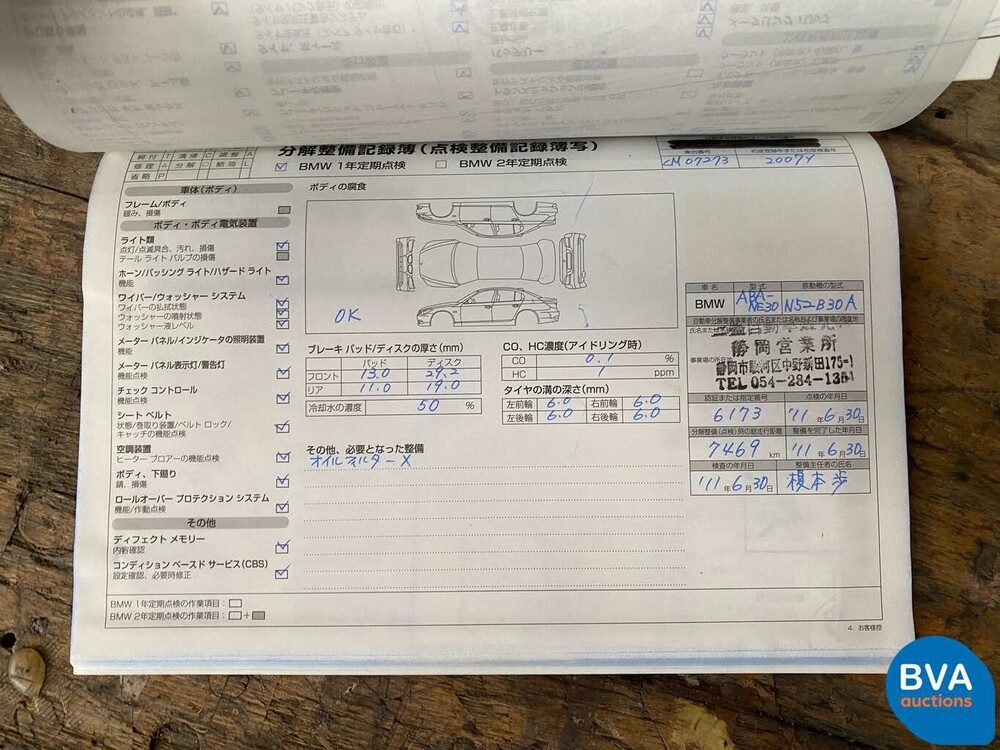 分解整備記録簿(点検整備記録簿写)
締付 T 清掃 C 調整 A
修理 △ 分解 ○ 給油 L
省略 P
BMW 1年定期点検 BMW 2年定期点検
車台番号
CM07273 2007Y
車体(ボディ)
フレーム/ボディ
緩み、損傷
ボディ・ボディ電気装置
ライト類
点灯/点滅具合、汚れ、損傷
テール ライト バルブの損傷
ホーン/パッシング ライト/ハザード ライト
機能
ワイパー/ウォッシャー システム
ワイパーの払拭状態
ウォッシャーの噴射状態
ウォッシャー液レベル
メーター パネル/インジケータの照明装置
機能
メーター パネル表示灯/警告灯
機能点検
チェック コントロール
機能点検
シート ベルト
状態/巻取り装置/ベルト ロック/
キャッチの機能点検
空調装置
ヒーター ブロアーの機能点検
ボディ、下廻り
錆、損傷
ロールオーバー プロテクション システム
機能/作動点検
その他
ディフェクト メモリー
内容確認
コンディション ベースド サービス(CBS)
設定確認、必要時修正
ボディの腐食
OK
ブレーキ パッド/ディスクの厚さ(mm)
パッド ディスク
フロント 13.0 29.2
リア 11.0 19.0
冷却水の濃度 50 %
CO、HC濃度(アイドリング時)
CO 0.1 %
HC 1 ppm
タイヤの溝の深さ(mm)
左前輪 6.0 右前輪 6.0
左後輪 6.0 右後輪 6.0
その他、必要となった整備
オイルフィルター X
車名 型式 原動機の型式
BMW ABA-NE30 N52-B30A
自動車分解整備事業者の氏名または名称および事業場の所在地
静岡営業所
静岡市駿河区中野新田175-1
TEL 054-284-1351
認証または指定番号 点検の年月日
6173 '11年6月30日
分解整備(点検)時の総走行距離 整備を完了した年月日
7469 km '11年6月30日
検査の年月日 整備主任者の氏名
'11年6月30日 榎本 歩
BMW 1年定期点検の作業項目:
BMW 2年定期点検の作業項目: +
4. お客様控
BVA
auctions